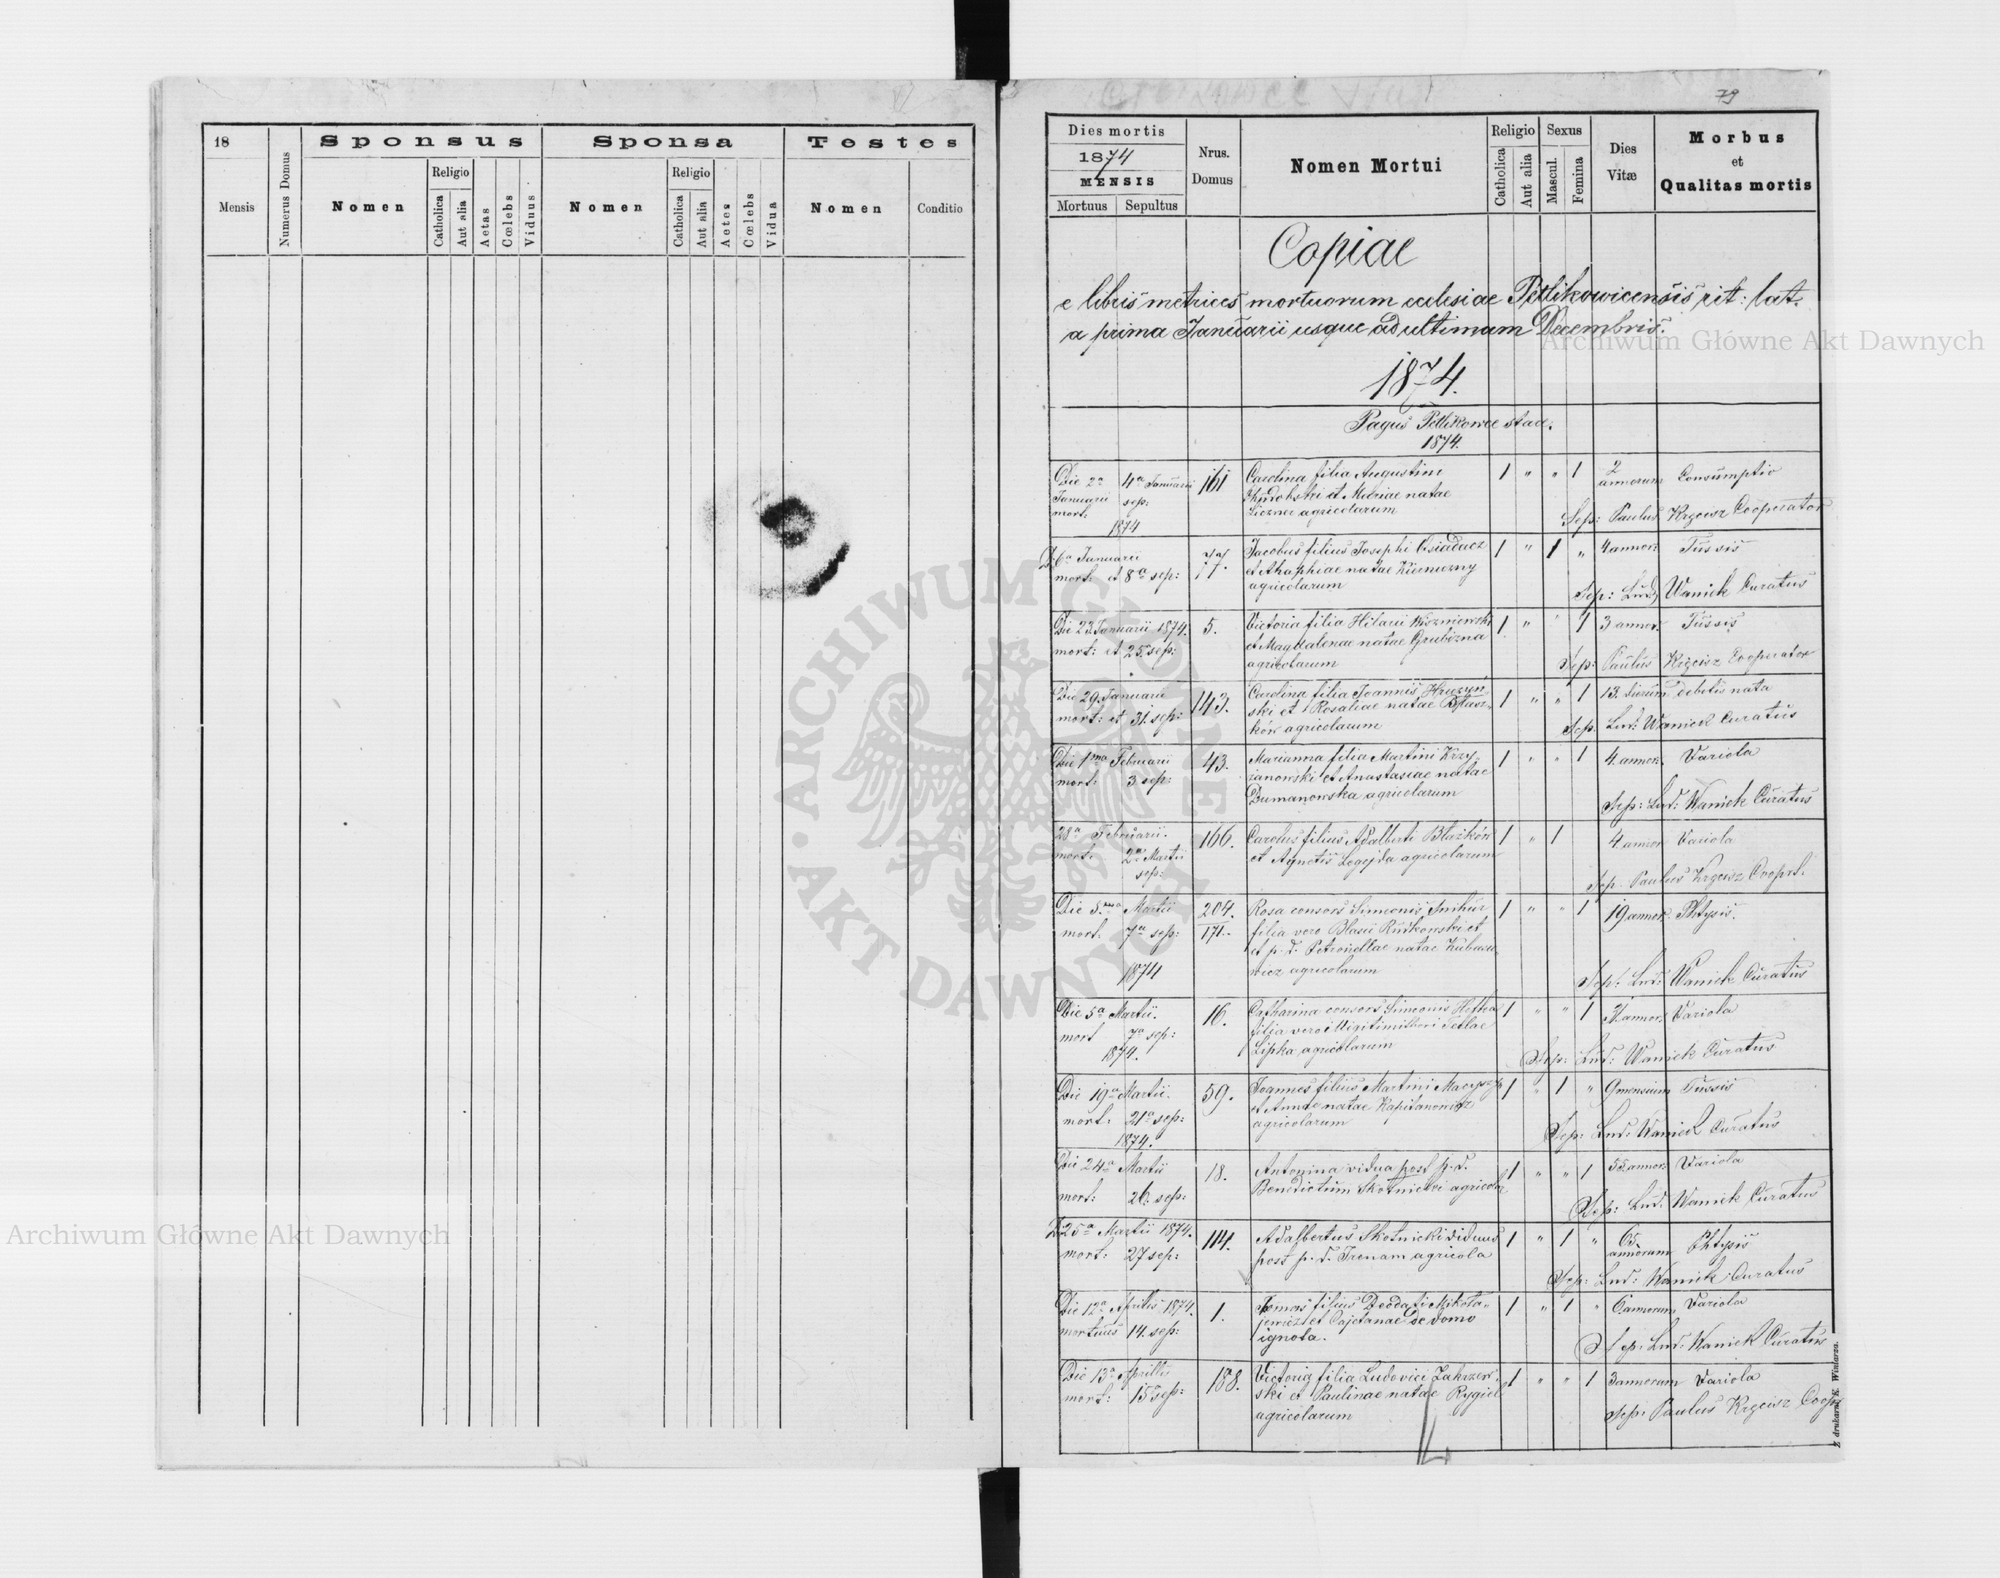 18
Mensis
Numerus Domus
Sponsus
Nomen
Religio
Catholica
Aut alia
Aetas
Cœlebs
Viduus
Sponsa
Nomen
Religio
Catholica
Aut alia
Aetes
Cœlebs
Vidua
Testes
Nomen
Conditio
79
Dies mortis
1874
MENSIS
Mortuus
Sepultus
Nrus.
Domus
Nomen Mortui
Religio
Catholica
Aut alia
Sexus
Mascul.
Femina
Dies
Vitæ
Morbus
et
Qualitas mortis
Copiae
e libris metrices mortuorum ecclesiae Petlikowicensis rit: lat.
a prima Januarii usque ad ultimum Decembris.
1874.
Pagus Petlikowce stare.
1874.
Die 2a 4a Januarii 161 Carolina filia Augustini 1 " " 1 2 annorum Consumptio
Januarii sep: et Mariae natae
mort. 1874 agricolarum Sep: Paulus Cooperator
6a Januarii 77. Jacobus filius Josephi 1 " 1 " 4 annor: Tussis
mort. et 8a sep: natae
agricolarum Sep: Lud: Waniek Curatus
Die 23. Januarii 1874. 5. Victoria filia Hilarii Wiszniewski 1 " " 1 3 annor. Tussis
mort: et 25. sep: et Magdalenae natae Grubizna
agricolarum Sep: Paulus Cooperator
Die 29. Januarii 143. Carolina filia Joannis Hruzyń- 1 " " 1 13. dierum debilis nata
mort: et 31. sep: ski et Rosaliae natae
agricolarum Sep. Lud: Waniek Curatus
Die 1ma Februarii 43. Marianna filia Martini Krzy- 1 " " 1 4. annor. Variola
mort: 3 sep: żanowski et Anastasiae natae
Dumanowska agricolarum Sep: Lud: Waniek Curatus
28a Februarii. 166. Carolus filius Adalberti Blażków 1 " 1 4. annor. Variola
mort. 2a Martii et Agnetis Legejda agricolarum
sep: Sep. Paulus
Die Martii 204. Rosa consors Simeonis 1 " " 1 19 annor. Phtysis.
mort. 7a sep: 171. filia vero Blasii Rutkowski et
et p. d. Petronellae natae
1874 agricolarum Sep: Lud: Waniek Curatus
Die 5a Martii. 16. Catharina consors Simeonis 1 " " 1 annor. Variola
mort 7a sep: filia vero Teclae
1874. Lipka agricolarum Sep: Lud: Waniek Curatus
Die 19a Martii. 59. Joannes filius Martini 1 " 1 " 9 mensium Tussis
mort. 21a sep: et Annae natae Kapitanowicz
1874. agricolarum Sep: Lud: Waniek Curatus
Die 24a Martii 18. Antonina vidua post p. d. 1 " " 1 annor. Variola
mort: 26. sep: Benedictum Skotnicki agricola
Sep: Lud. Waniek Curatus
25a Martii 1874. 114. Adalbertus Skotnicki viduus 1 " 1 " annorum Phtysis
mort: 27 sep: post p. d. Irenam agricola
Sep: Lud: Waniek Curatus
Die 12a Aprilis 1874. 1. filius Deodati Mikoła- 1 " 1 " 6 annorum Variola
mortuus 14. sep: jewicz et Cajetanae de domo
ignota. Sep: Lud: Waniek Curatus
Die 13a Aprilis 188. Victoria filia Ludovici Zakrzew- 1 " " 1 3 annorum Variola
mort: 15 sep: ski et Paulinae natae Rygiel
agricolarum Sep: Paulus Coop.
Z drukarni K. Winiarza.
Archiwum Główne Akt Dawnych
Archiwum Główne Akt Dawnych
ARCHIWUM GŁÓWNE AKT DAWNYCH